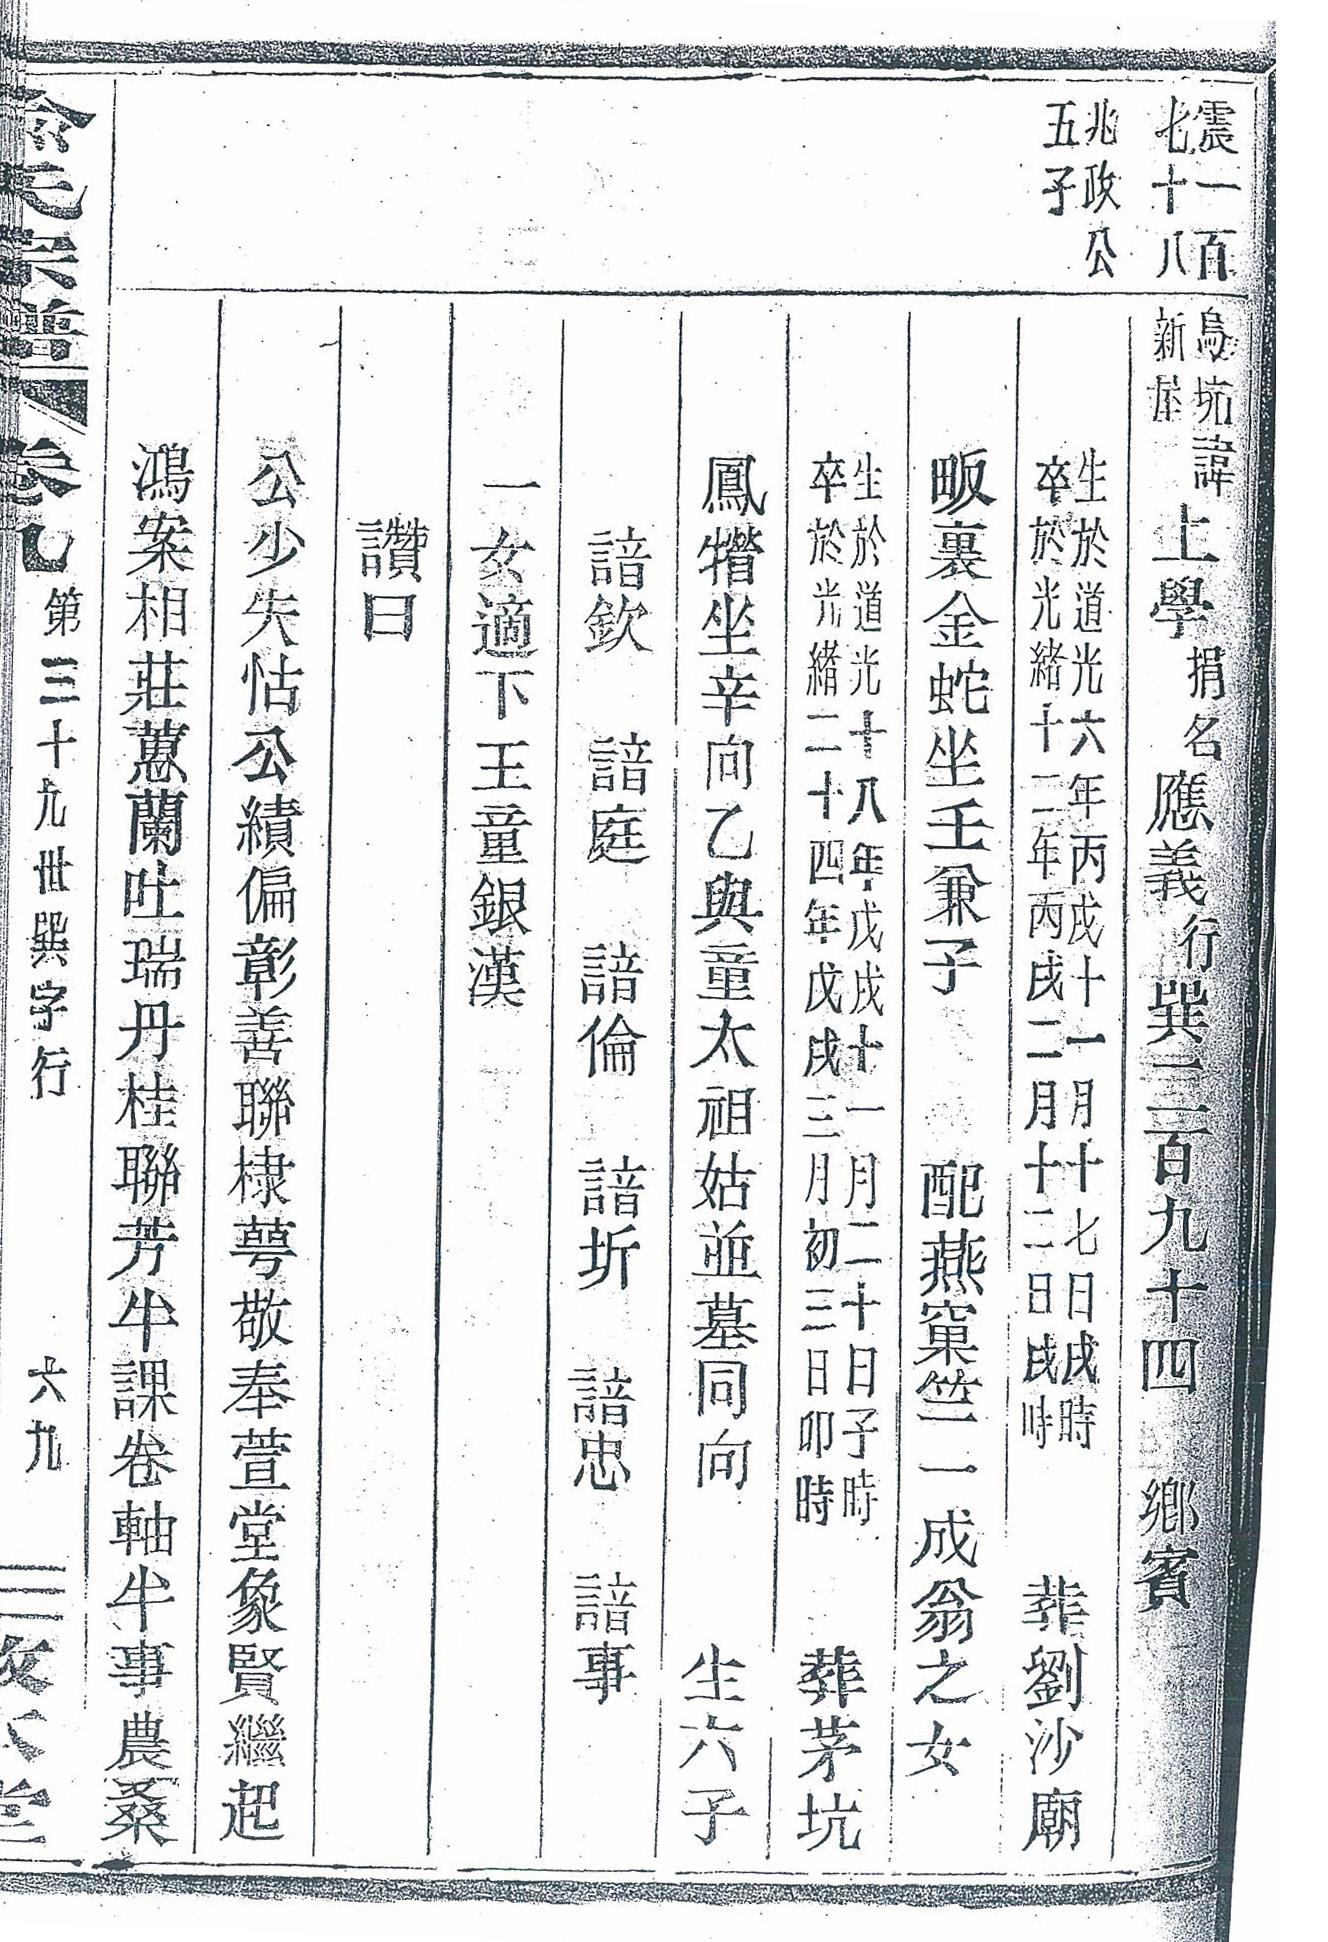 震一百
七十八
兆政公
五子
烏坑
新屋
諱上學捐名應義行巽三百九十四　鄉賓
生於道光六年丙戌十一月十七日戌時
卒於光緒十二年丙戌二月十二日戌時
葬劉沙廟
畈裏金蛇坐壬兼子　配燕窠竺一成翁之女
生於道光十八年戊戌十一月二十日子時
卒於光緒二十四年戊戌三月初三日卯時
葬茅坑
鳳犄坐辛向乙與童太祖姑並墓同向　生六子
諳欽　諳庭　諳倫　諳圻　諳忠　諳事
一女適下王童銀漢
讚曰
公少失怙公績偏彰善聯棣萼敬奉萱堂象賢繼起
鴻案相莊蕙蘭吐瑞丹桂聯芳半課卷軸半事農桑
氏宗譜
卷九
第三十九世巽字行
六九
堂